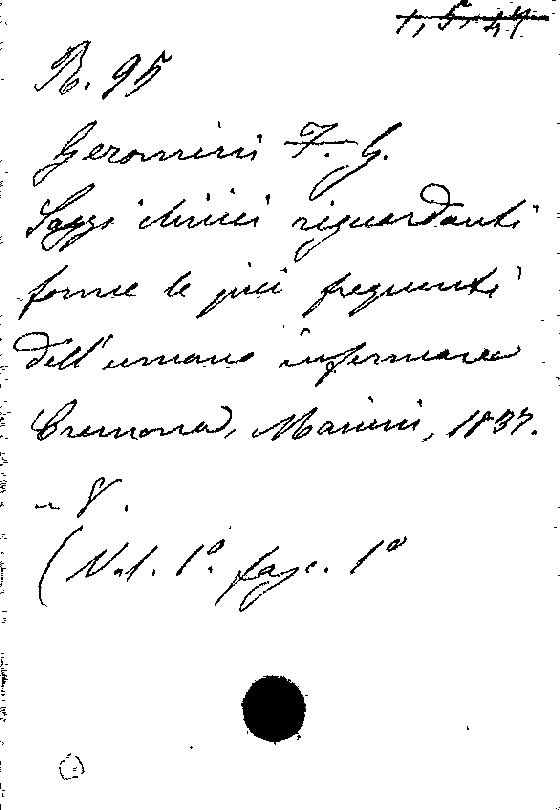 1, 5, 44
R. 95
Geromini F. G.
Saggi clinici riguardanti
forme le più frequenti
dell'umano infermare
Cremona, Manini, 1837.
- 8.
(Vol. 1º. fasc. 1º